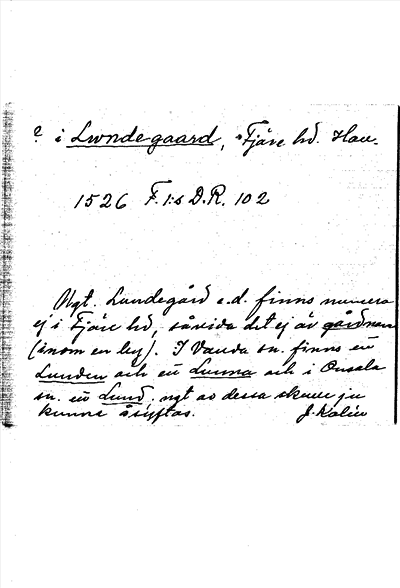 e i Lwndegaard, Fjäre hd. Hall.
1526 F.I:s D.R. 102
Ngt. Lundegård e.d. finns numera
ej i Fjäre hd, såvida det ej är gårdnamn
(inom en by). I Vanda sn. finns en
Lunden och en Lunna och i Onsala
sn. en Lund. ngt av dessa skulle ju
kunna åsyftas. J. Kalén